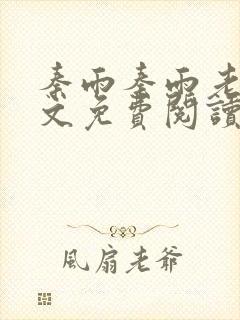 秦雨秦雨老
文免費閱讀
風扇老爺